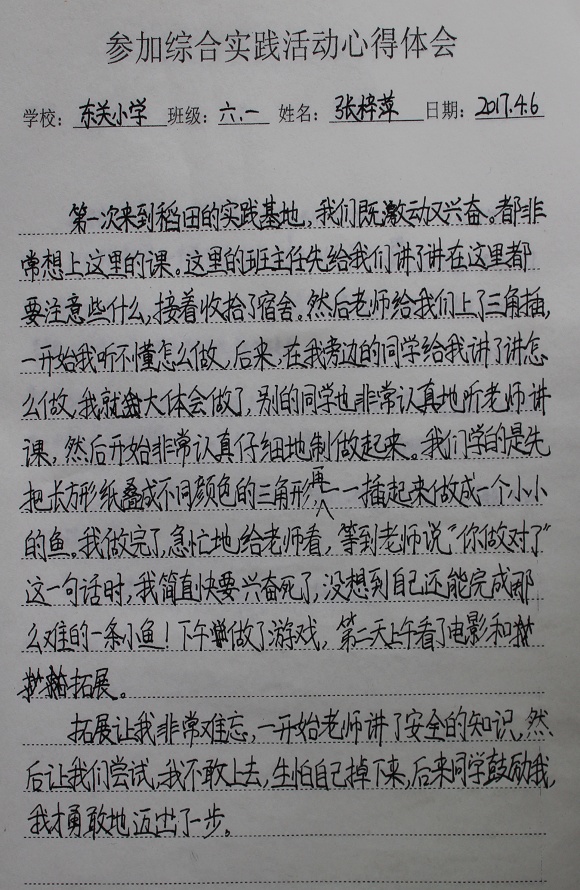 参加综合实践活动心得体会
学校：东关小学 班级：六.一 姓名：张梓萍 日期：2017.4.6
第一次来到稻田的实践基地，我们既激动又兴奋。都非
常想上这里的课。这里的班主任先给我们讲了讲在这里都
要注意些什么，接着收拾了宿舍。然后老师给我们上了三角插，
一开始我听不懂怎么做，后来，在我旁边的同学给我讲了讲怎
么做，我就大体会做了，别的同学也非常认真地听老师讲
课，然后开始非常认真仔细地制做起来。我们学的是先
把长方形纸叠成不同颜色的三角形，再一一插起来做成一个小小
的鱼。我做完了，急忙地给老师看，等到老师说“你做对了”
这一句话时，我简直快要兴奋死了，没想到自己还能完成那
么难的一条小鱼！下午做了游戏，第二天上午看了电影和
拓展。
拓展让我非常难忘，一开始老师讲了安全的知识，然
后让我们尝试，我不敢上去，生怕自己掉下来，后来同学鼓励我，
我才勇敢地迈出了一步。